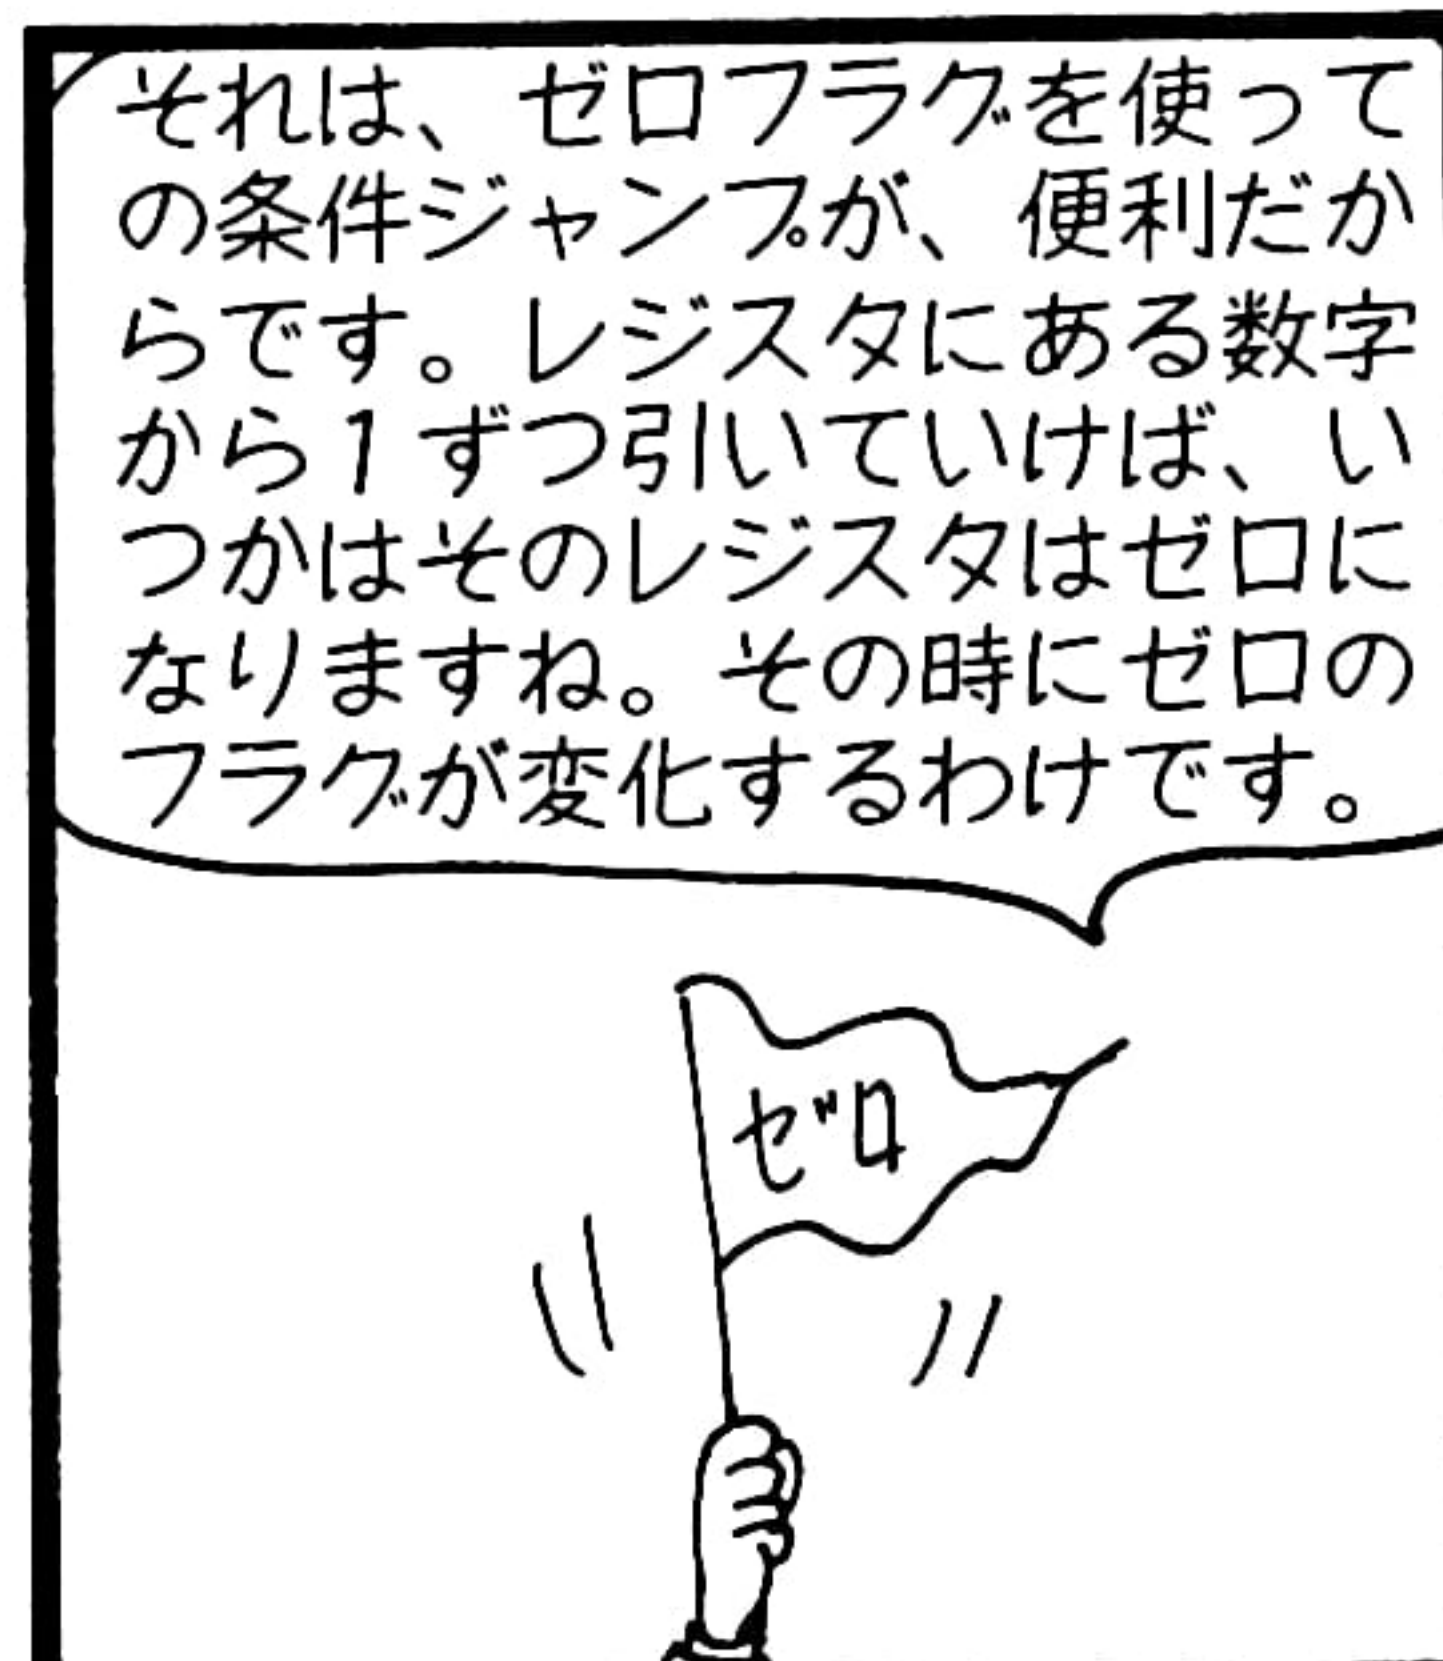 それは、ゼロフラグを使って
の条件ジャンプが、便利だか
らです。レジスタにある数字
から1ずつ引いていけば、い
つかはそのレジスタはゼロに
なりますね。その時にゼロの
フラグが変化するわけです。
ゼロ